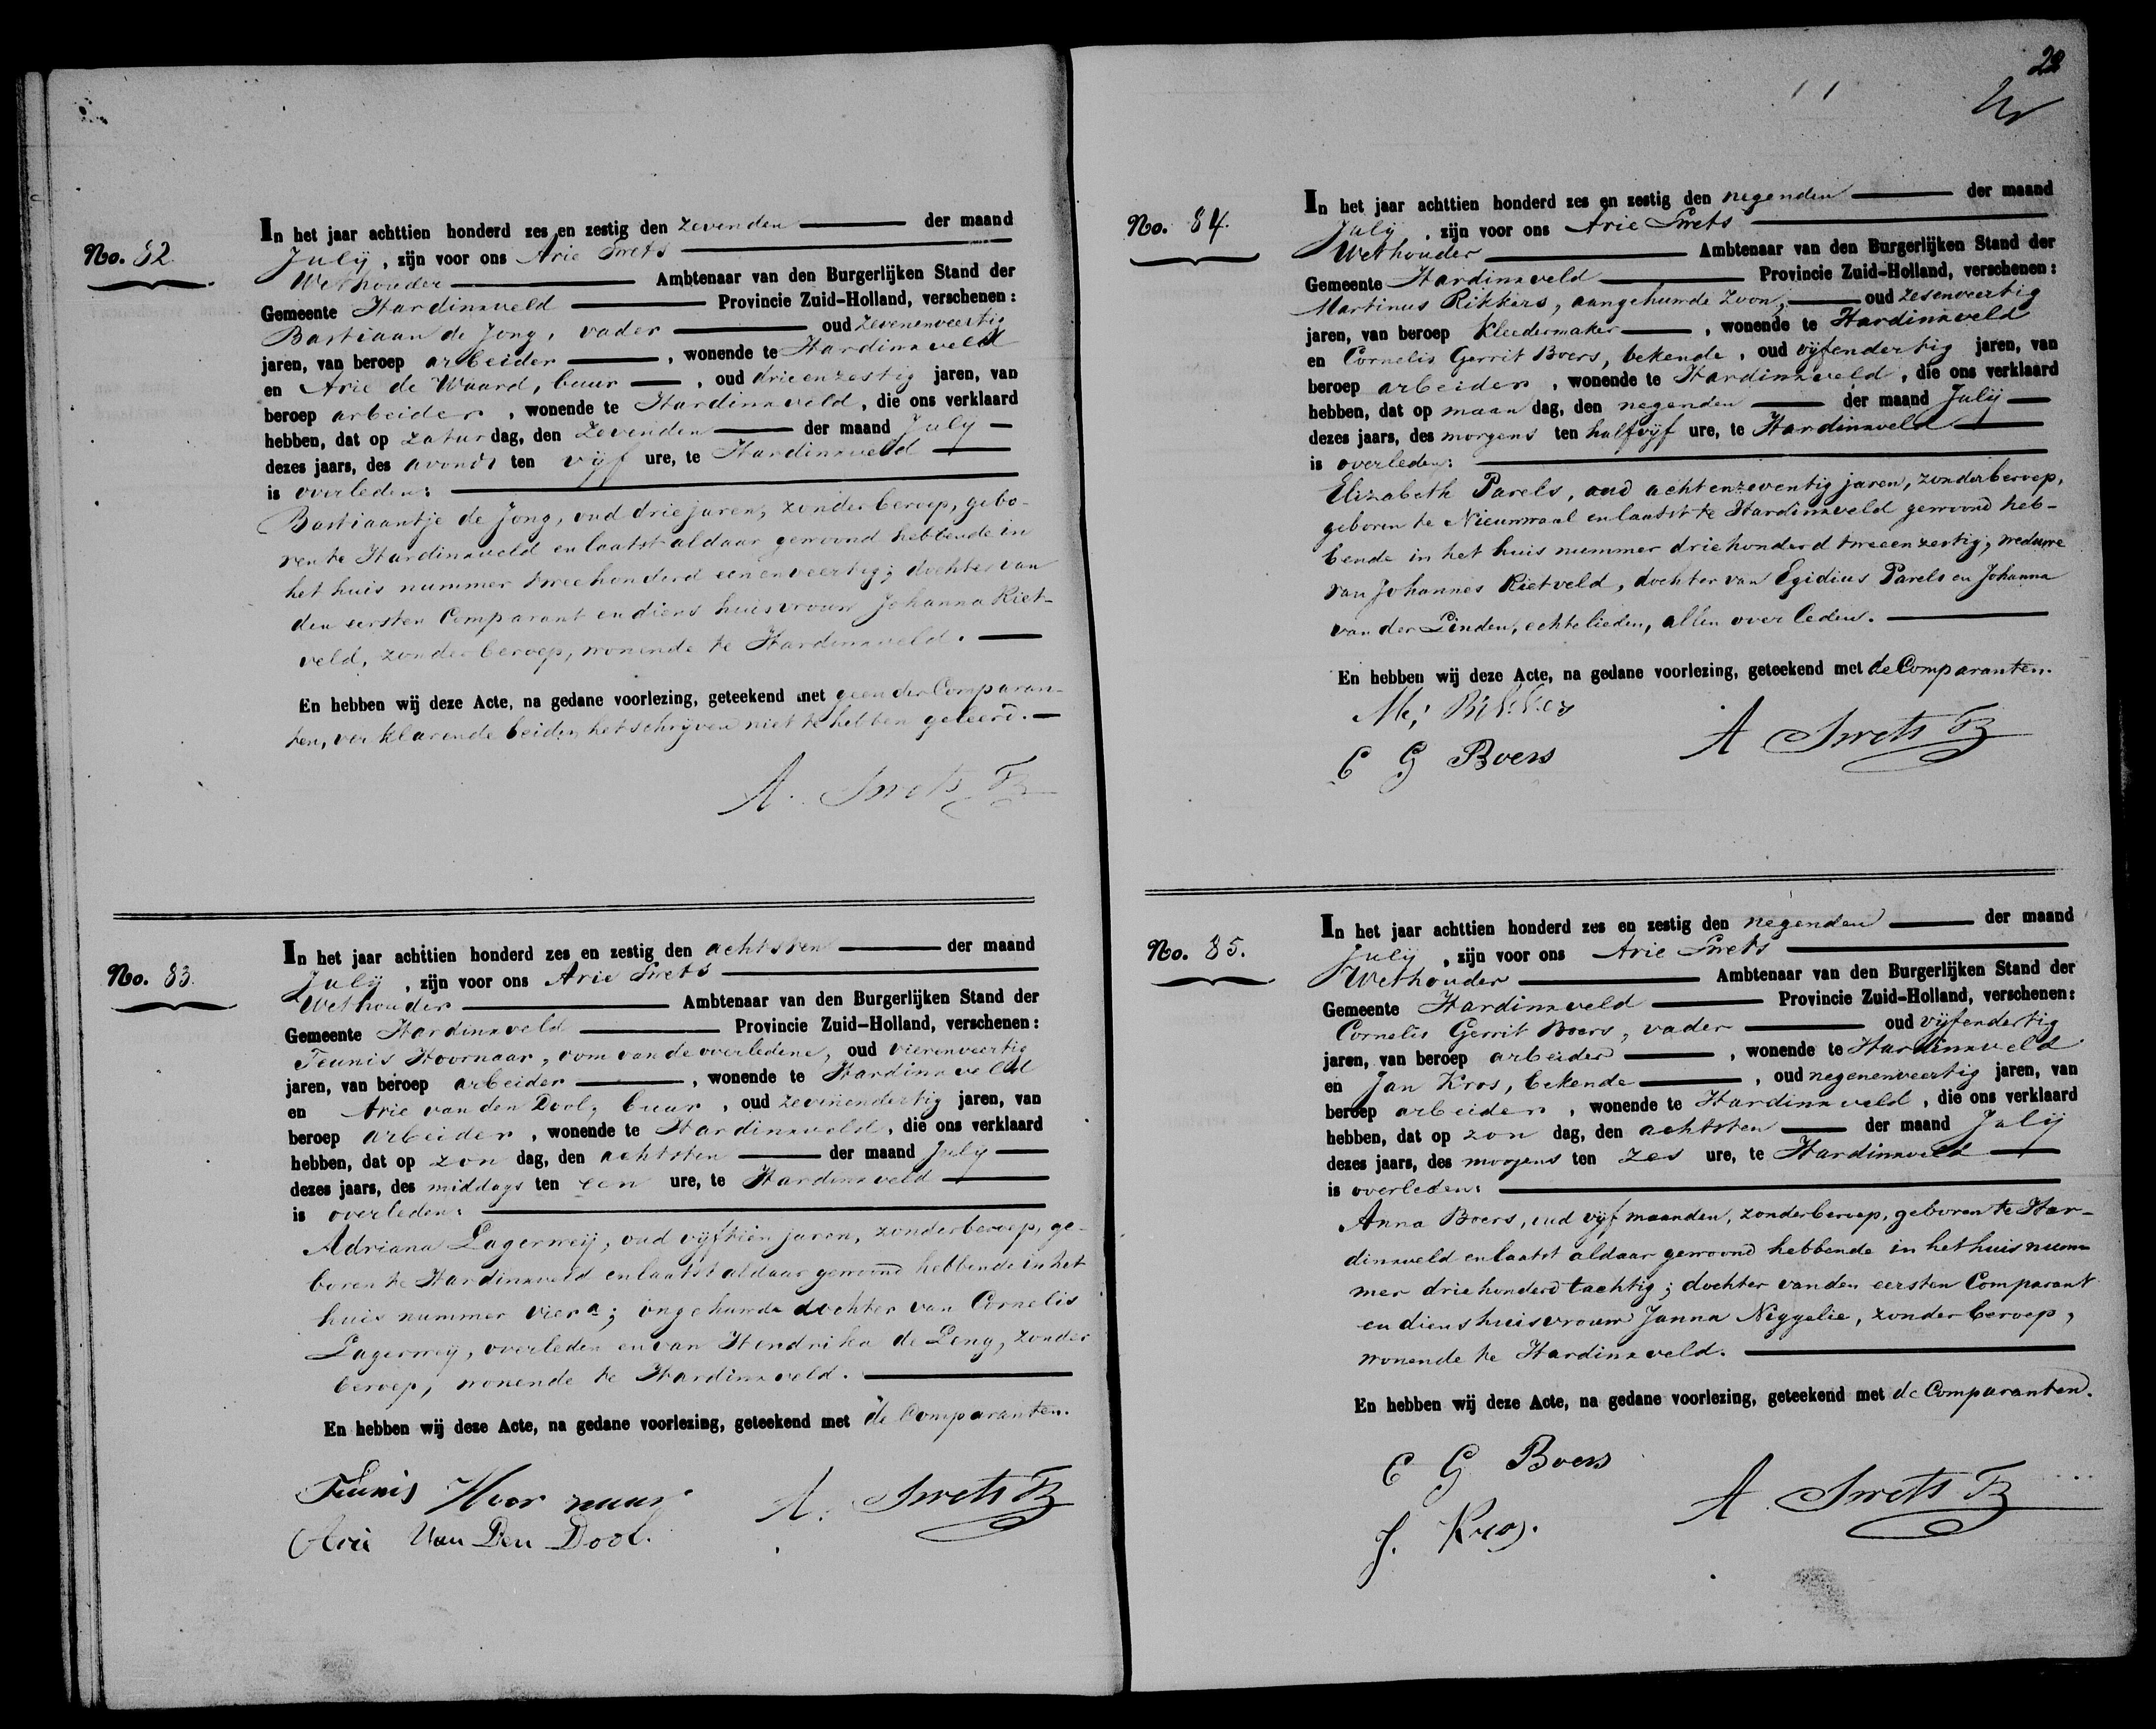 No. 82.
In het jaar achttien honderd zes en zestig den zevenden der maand
July, zijn voor ons Arie Smets
Wethouder Ambtenaar van den Burgerlijken Stand der
Gemeente Hardinxveld Provincie Zuid-Holland, verschenen:
Bastiaan de Jong, vader oud zevenenveertig
jaren, van beroep arbeider, wonende te Hardinxveld
en Arie de Waard, buur, oud drieenzestig jaren, van
beroep arbeider, wonende te Hardinxveld, die ons verklaard
hebben, dat op zaturdag, den zevenden der maand July
dezes jaars, des avonds ten vijf ure, te Hardinxveld
is overleden:
Bastiaantje de Jong, oud drie jaren, zonder beroep, gebo-
ren te Hardinxveld en laatst aldaar gewoond hebbende in
het huis nummer tweehonderd eenenveertig; dochter van
den eersten Comparant en diens huisvrouw Johanna Riet-
veld, zonder beroep, wonende te Hardinxveld.
En hebben wij deze Acte, na gedane voorlezing, geteekend met geen der Comparan-
ten, verklarende beiden het schrijven niet te hebben geleerd.
A. Smets Tz
No. 83.
In het jaar achttien honderd zes en zestig den achtsten der maand
July, zijn voor ons Arie Smets
Wethouder Ambtenaar van den Burgerlijken Stand der
Gemeente Hardinxveld Provincie Zuid-Holland, verschenen:
Teunis Hoornaar, oom van de overledene, oud vierenveertig
jaren, van beroep arbeider, wonende te Hardinxveld
en Arie van den Dool, buur, oud zevenendertig jaren, van
beroep arbeider, wonende te Hardinxveld, die ons verklaard
hebben, dat op zondag, den achtsten der maand July
dezes jaars, des middags ten een ure, te Hardinxveld
is overleden:
Adriana Lagerweij, oud vijftien jaren, zonder beroep, ge-
boren te Hardinxveld en laatst aldaar gewoond hebbende in het
huis nummer vier a; ongehuwde dochter van Cornelis
Lagerweij, overleden en van Hendrika de Leng, zonder
beroep, wonende te Hardinxveld.
En hebben wij deze Acte, na gedane voorlezing, geteekend met de Comparanten.
Teunis Hoornaar
Arie Van Den Dool.
A. Smets Tz
No. 84.
In het jaar achttien honderd zes en zestig den negenden der maand
July, zijn voor ons Arie Smets
Wethouder Ambtenaar van den Burgerlijken Stand der
Gemeente Hardinxveld Provincie Zuid-Holland, verschenen:
Martinus Rikkers, aangehuwde zoon, oud zesenveertig
jaren, van beroep Kleedermaker, wonende te Hardinxveld
en Cornelis Gerrit Boers, bekende, oud vijfendertig jaren, van
beroep arbeider, wonende te Hardinxveld, die ons verklaard
hebben, dat op maandag, den negenden der maand July
dezes jaars, des morgens ten half vijf ure, te Hardinxveld
is overleden:
Elizabeth Parels, oud achtenzeventig jaren, zonder beroep,
geboren te Nieuwaal en laatst te Hardinxveld gewoond heb-
bende in het huis nummer driehonderd tweeenzestig; weduwe
van Johannes Rietveld, dochter van Egidius Parels en Johanna
van der Linden, echtelieden, allen overleden.
En hebben wij deze Acte, na gedane voorlezing, geteekend met de Comparanten.
M: Rikkers
C G Boers
A Smets Tz
No. 85.
In het jaar achttien honderd zes en zestig den negenden der maand
July, zijn voor ons Arie Smets
Wethouder Ambtenaar van den Burgerlijken Stand der
Gemeente Hardinxveld Provincie Zuid-Holland, verschenen:
Cornelis Gerrit Boers, vader oud vijfendertig
jaren, van beroep arbeider, wonende te Hardinxveld
en Jan Kros, bekende, oud negenenveertig jaren, van
beroep arbeider, wonende te Hardinxveld, die ons verklaard
hebben, dat op zondag, den achtsten der maand July
dezes jaars, des morgens ten zes ure, te Hardinxveld
is overleden:
Anna Boers, oud vijf maanden, zonder beroep, geboren te Har-
dinxveld en laatst aldaar gewoond hebbende in het huis num-
mer driehonderd tachtig; dochter van den eersten Comparant
en diens huisvrouw Janna Niggelie, zonder beroep,
wonende te Hardinxveld.
En hebben wij deze Acte, na gedane voorlezing, geteekend met de Comparanten.
C G Boers
J. Kros.
A. Smets Tz